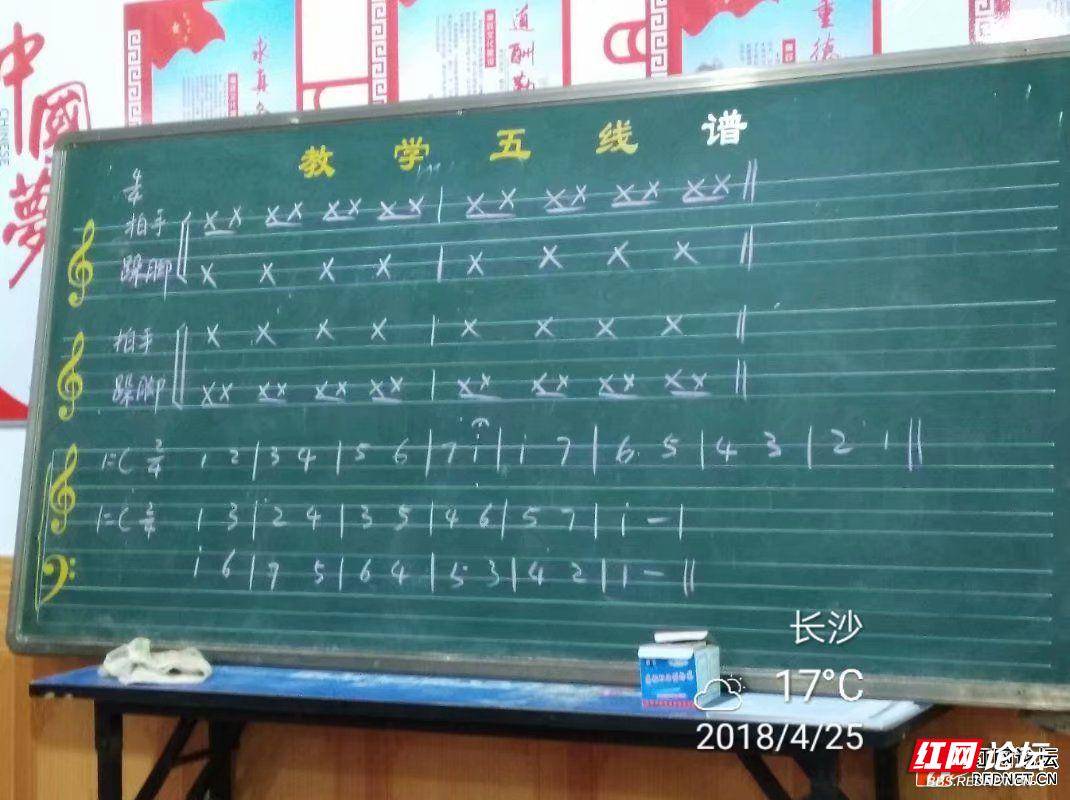 中國夢
CHINESE
求真
道酬勤
重德
教学五线谱
拍手 X X X X X X X X | X X X X X X X X ‖
跺脚 X X X X | X X X X ‖
拍手 X X X X | X X X X ‖
跺脚 X X X X X X X X | X X X X X X X X ‖
1=C 2/4 1 2 | 3 4 | 5 6 | 7 i | i 7 | 6 5 | 4 3 | 2 1 ‖
1=C 2/4 1 3 | 2 4 | 3 5 | 4 6 | 5 7 | i — |
i 6 | 7 5 | 6 4 | 5 3 | 4 2 | 1 — ‖
长沙
17°C
2018/4/25
红网论坛
BBS.REDNET.CN